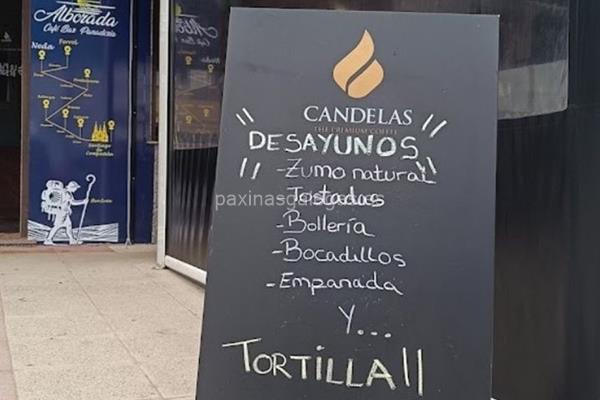 Alborada
Café Bar Panadería
Ferrol
Neda
Santiago de Compostela
CANDELAS
THE PREMIUM COFFEE
"DESAYUNOS"
- Zumo natural
- Tostadas
- Bollería
- Bocadillos
- Empanada
Y...
TORTILLA!!
paxinasgalegas